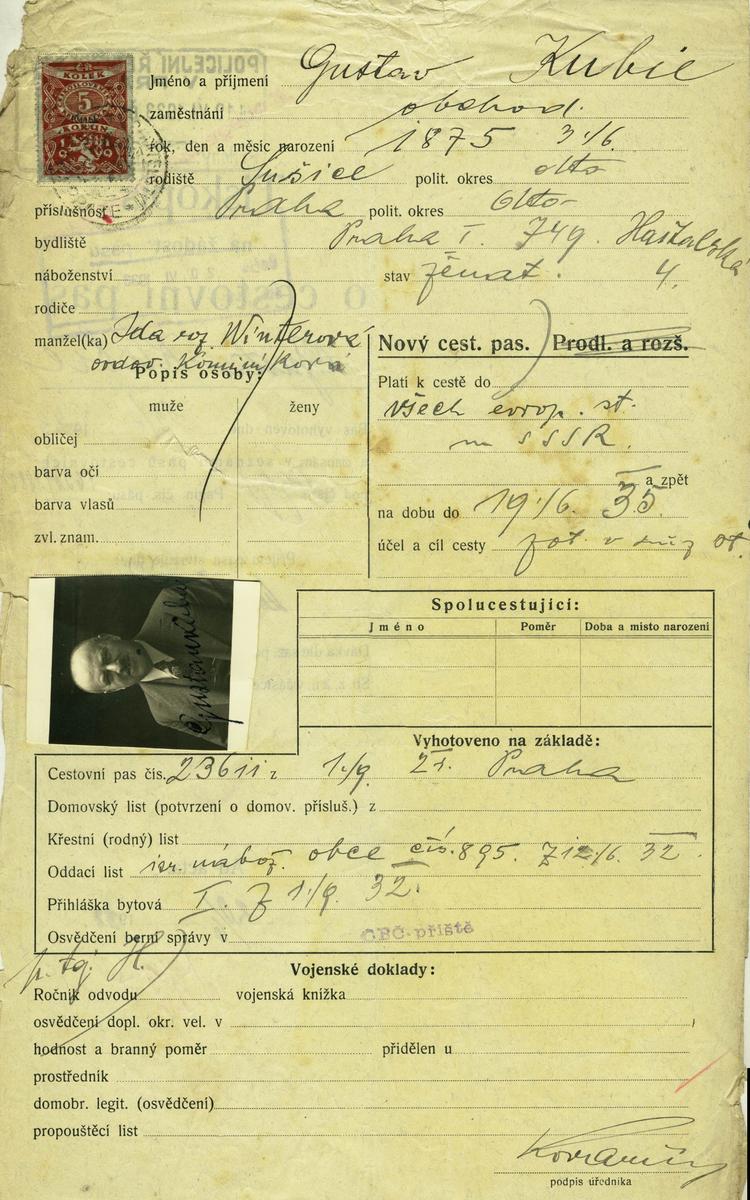 Jméno a příjmení Gustav Kubie
zaměstnání obchod.
rok, den a měsíc narození 1875 3./6.
rodiště Sušice polit. okres dtto
příslušnost Praha polit. okres dtto
bydliště Praha I. 749. Haštalská
náboženství stav ženat. 4.
rodiče
manžel(ka) Ida roz. Winterová
ovdov.
Popis osoby:
muže ženy
obličej
barva očí
barva vlasů
zvl. znam.
Nový cest. pas. Prodl. a rozš.
Platí k cestě do
všech evrop. st.
SSSR.
a zpět
na dobu do 19./6. 35.
účel a cíl cesty
KOLEK
5
KORUN
Spolucestující:
Jméno Poměr Doba a místo narození
Vyhotoveno na základě:
Cestovní pas čís. 23611 z 1./9. Praha
Domovský list (potvrzení o domov. přísluš.) z
Křestní (rodný) list
Oddací list isr. nábož. obce čís. 895. z 12./6. 32.
Přihláška bytová I. z 1./9. 32.
Osvědčení berní správy v příště
Vojenské doklady:
Ročník odvodu vojenská knížka
osvědčení dopl. okr. vel. v
hodnost a branný poměr přidělen u
prostředník
domobr. legit. (osvědčení)
propouštěcí list
podpis úředníka